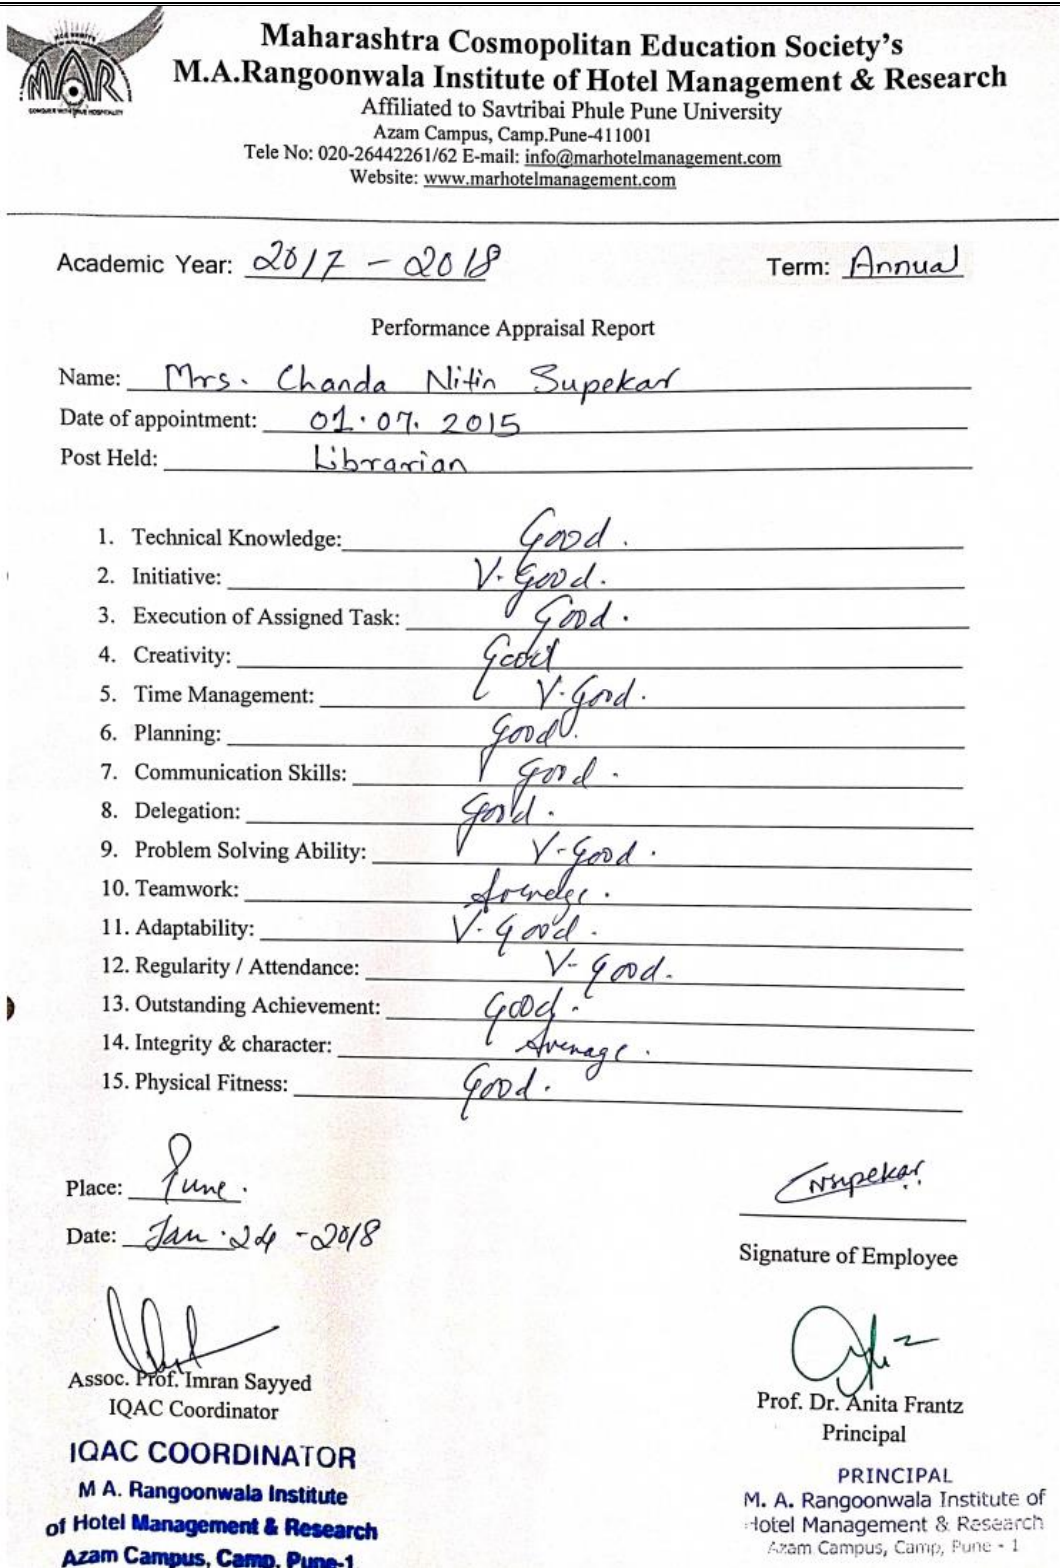 MAR
Maharashtra Cosmopolitan Education Society's
M.A.Rangoonwala Institute of Hotel Management & Research
Affiliated to Savtribai Phule Pune University
Azam Campus, Camp.Pune-411001
Tele No: 020-26442261/62 E-mail: info@marhotelmanagement.com
Website: www.marhotelmanagement.com
Academic Year: 2017 - 2018 Term: Annual
Performance Appraisal Report
Name: Mrs. Chanda Nitin Supekar
Date of appointment: 01.07.2015
Post Held: Librarian
1. Technical Knowledge: Good.
2. Initiative: V. Good.
3. Execution of Assigned Task: Good.
4. Creativity: Good
5. Time Management: V. Good.
6. Planning: Good.
7. Communication Skills: Good.
8. Delegation: Good.
9. Problem Solving Ability: V-Good.
10. Teamwork: Average.
11. Adaptability: V. Good.
12. Regularity / Attendance: V- Good.
13. Outstanding Achievement: Good.
14. Integrity & character: Average.
15. Physical Fitness: Good.
Place: Pune.
Date: Jan. 24 - 2018
Supekar
Signature of Employee
Assoc. Prof. Imran Sayyed
IQAC Coordinator
IQAC COORDINATOR
M A. Rangoonwala Institute
of Hotel Management & Research
Azam Campus, Camp, Pune-1
Prof. Dr. Anita Frantz
Principal
PRINCIPAL
M. A. Rangoonwala Institute of
Hotel Management & Research
Azam Campus, Camp, Pune - 1